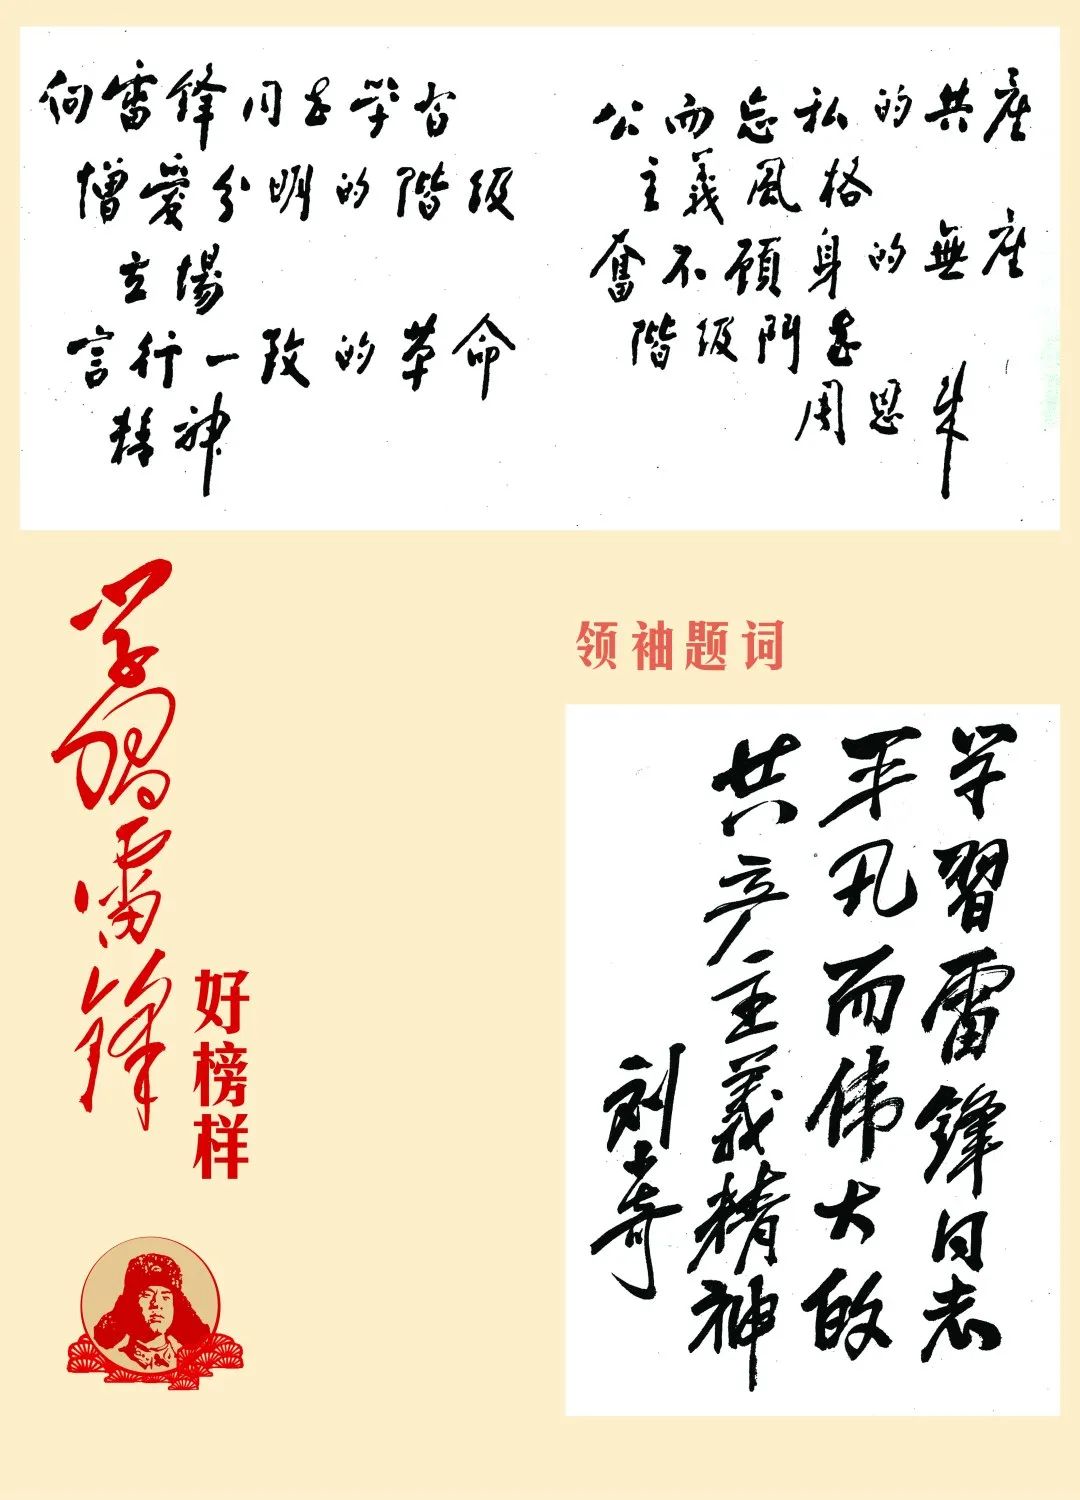 向雷锋同志学習
憎愛分明的階级
立場
言行一致的革命
精神
公而忘私的共産
主義風格
奮不顧身的無産
階级鬥志
周恩来
学习雷锋
好榜样
领袖题词
学習雷锋同志
平凡而伟大的
共产主義精神
刘少奇